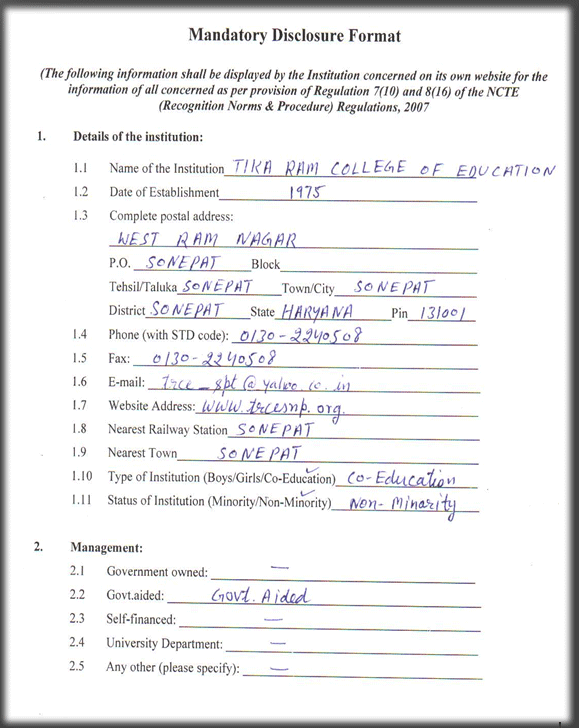 Mandatory Disclosure Format
(The following information shall be displayed by the Institution concerned on its own website for the
information of all concerned as per provision of Regulation 7(10) and 8(16) of the NCTE
(Recognition Norms & Procedure) Regulations, 2007
1. Details of the institution:
1.1 Name of the Institution TIKA RAM COLLEGE OF EDUCATION
1.2 Date of Establishment 1975
1.3 Complete postal address:
WEST RAM NAGAR
P.O. SONEPAT Block
Tehsil/Taluka SONEPAT Town/City SONEPAT
District SONEPAT State HARYANA Pin 131001
1.4 Phone (with STD code): 0130-2240508
1.5 Fax: 0130-2240508
1.6 E-mail: trce_spt@yahoo.co.in
1.7 Website Address: www.trcesnp.org.
1.8 Nearest Railway Station SONEPAT
1.9 Nearest Town SONEPAT
1.10 Type of Institution (Boys/Girls/Co-Education) Co-Education
1.11 Status of Institution (Minority/Non-Minority) Non-Minority
2. Management:
2.1 Government owned: —
2.2 Govt.aided: Govt. Aided
2.3 Self-financed: —
2.4 University Department: —
2.5 Any other (please specify): —